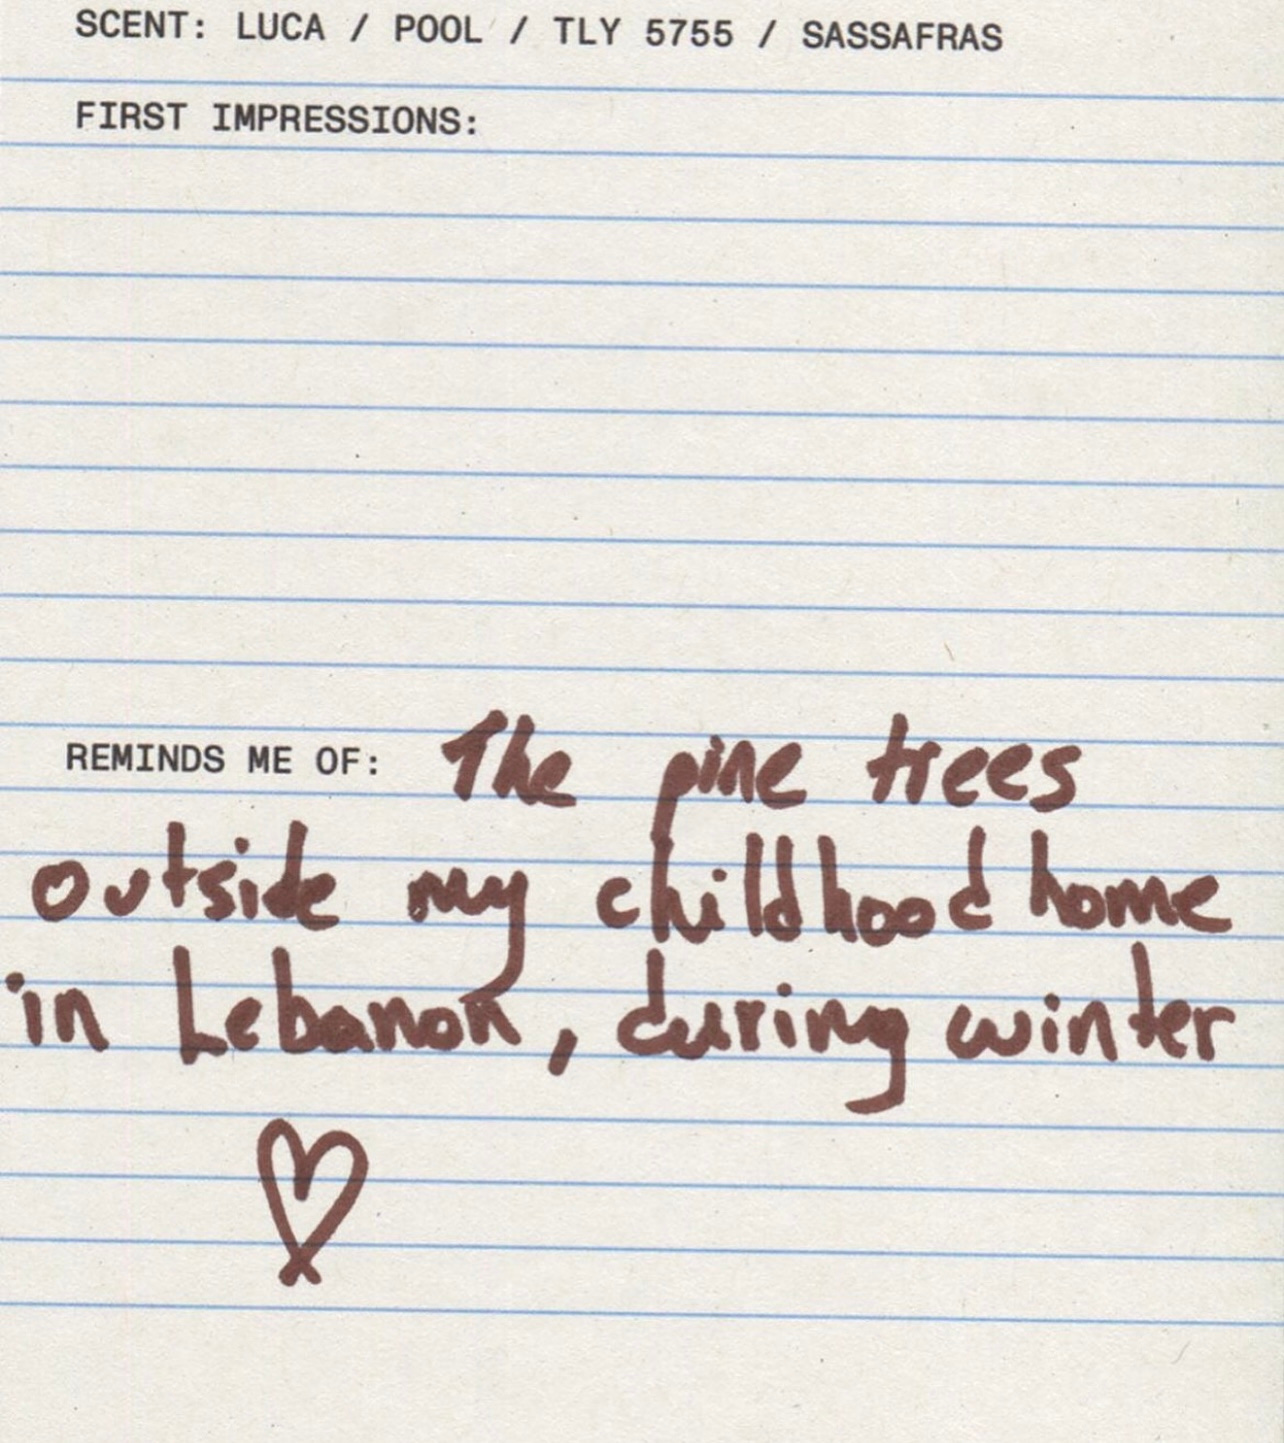 SCENT: LUCA / POOL / TLY 5755 / SASSAFRAS
FIRST IMPRESSIONS:
REMINDS ME OF: The pine trees
outside my childhood home
in Lebanon, during winter